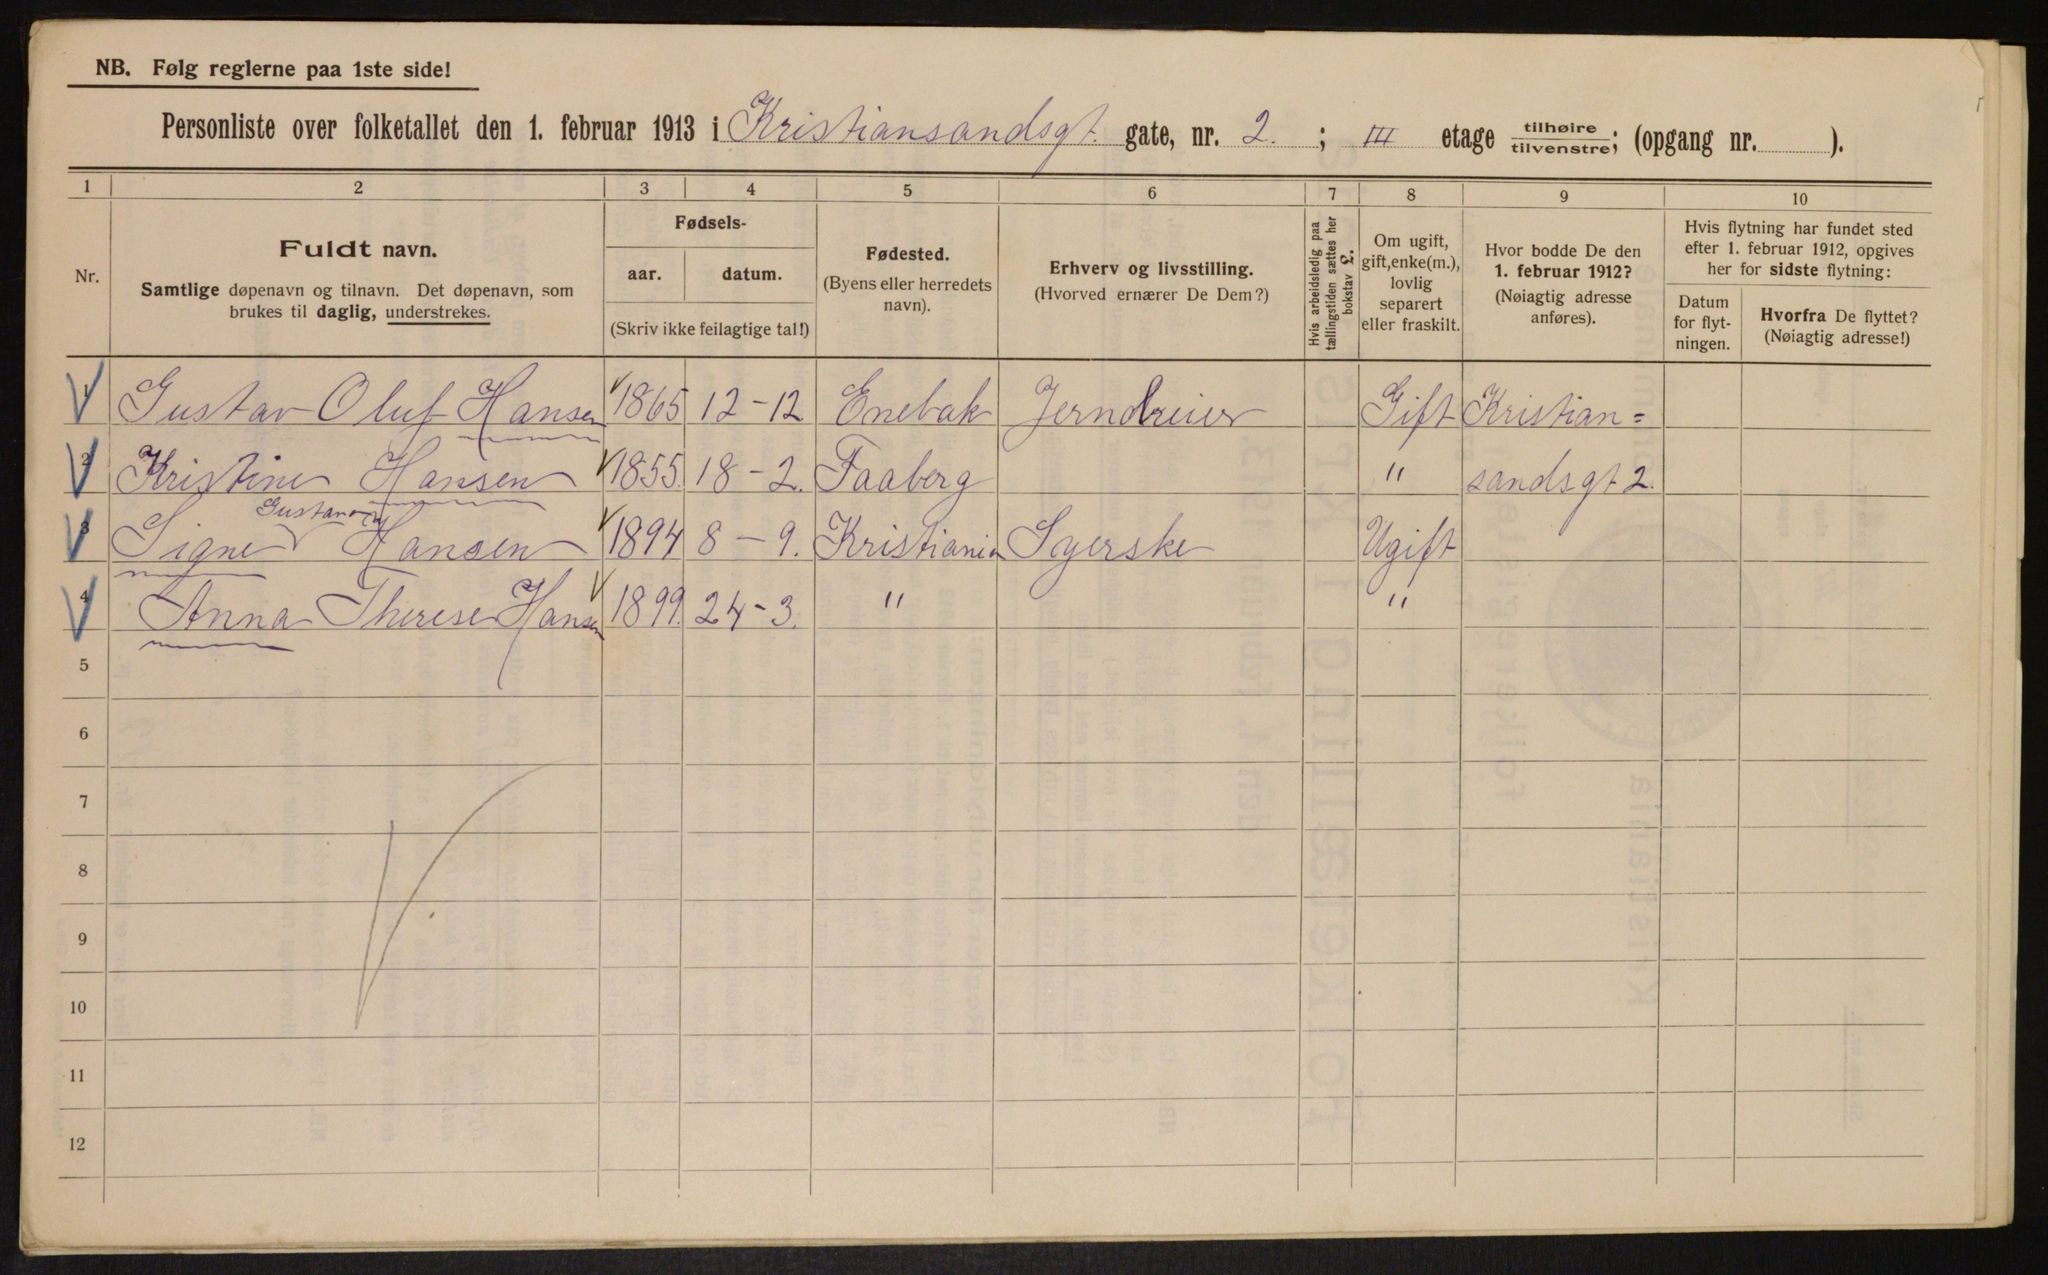 NB. Følg reglerne paa 1ste side!
Personliste over folketallet den 1. februar 1913 i Kristiansandsgt. gate, nr. 2. ; III etage tilhøire / tilvenstre; (opgang nr. ).
1 2 3 4 5 6 7 8 9 10
Nr.
Fuldt navn.
Samtlige døpenavn og tilnavn. Det døpenavn, som
brukes til daglig, understrekes.
Fødsels-
aar. datum.
(Skriv ikke feilagtige tal!)
Fødested.
(Byens eller herredets
navn).
Erhverv og livsstilling.
(Hvorved ernærer De Dem?)
Hvis arbeidsledig paa
tællingstiden sættes her
bokstav L.
Om ugift,
gift, enke(m.),
lovlig
separert
eller fraskilt.
Hvor bodde De den
1. februar 1912?
(Nøiagtig adresse
anføres).
Hvis flytning har fundet sted
efter 1. februar 1912, opgives
her for sidste flytning:
Datum
for flyt-
ningen.
Hvorfra De flyttet?
(Nøiagtig adresse!)
1 Gustav Oluf Hansen 1865 12-12 Enebak Jerndreier Gift Kristian=
2 Kristine Hansen 1855. 18-2. Faaberg " sandsgt 2.
3 Signe Hansen 1894 8-9. Kristiania Syerske Ugift
4 Anna Therese Hansen 1899. 24-3. " "
5
6
7
8
9
10
11
12